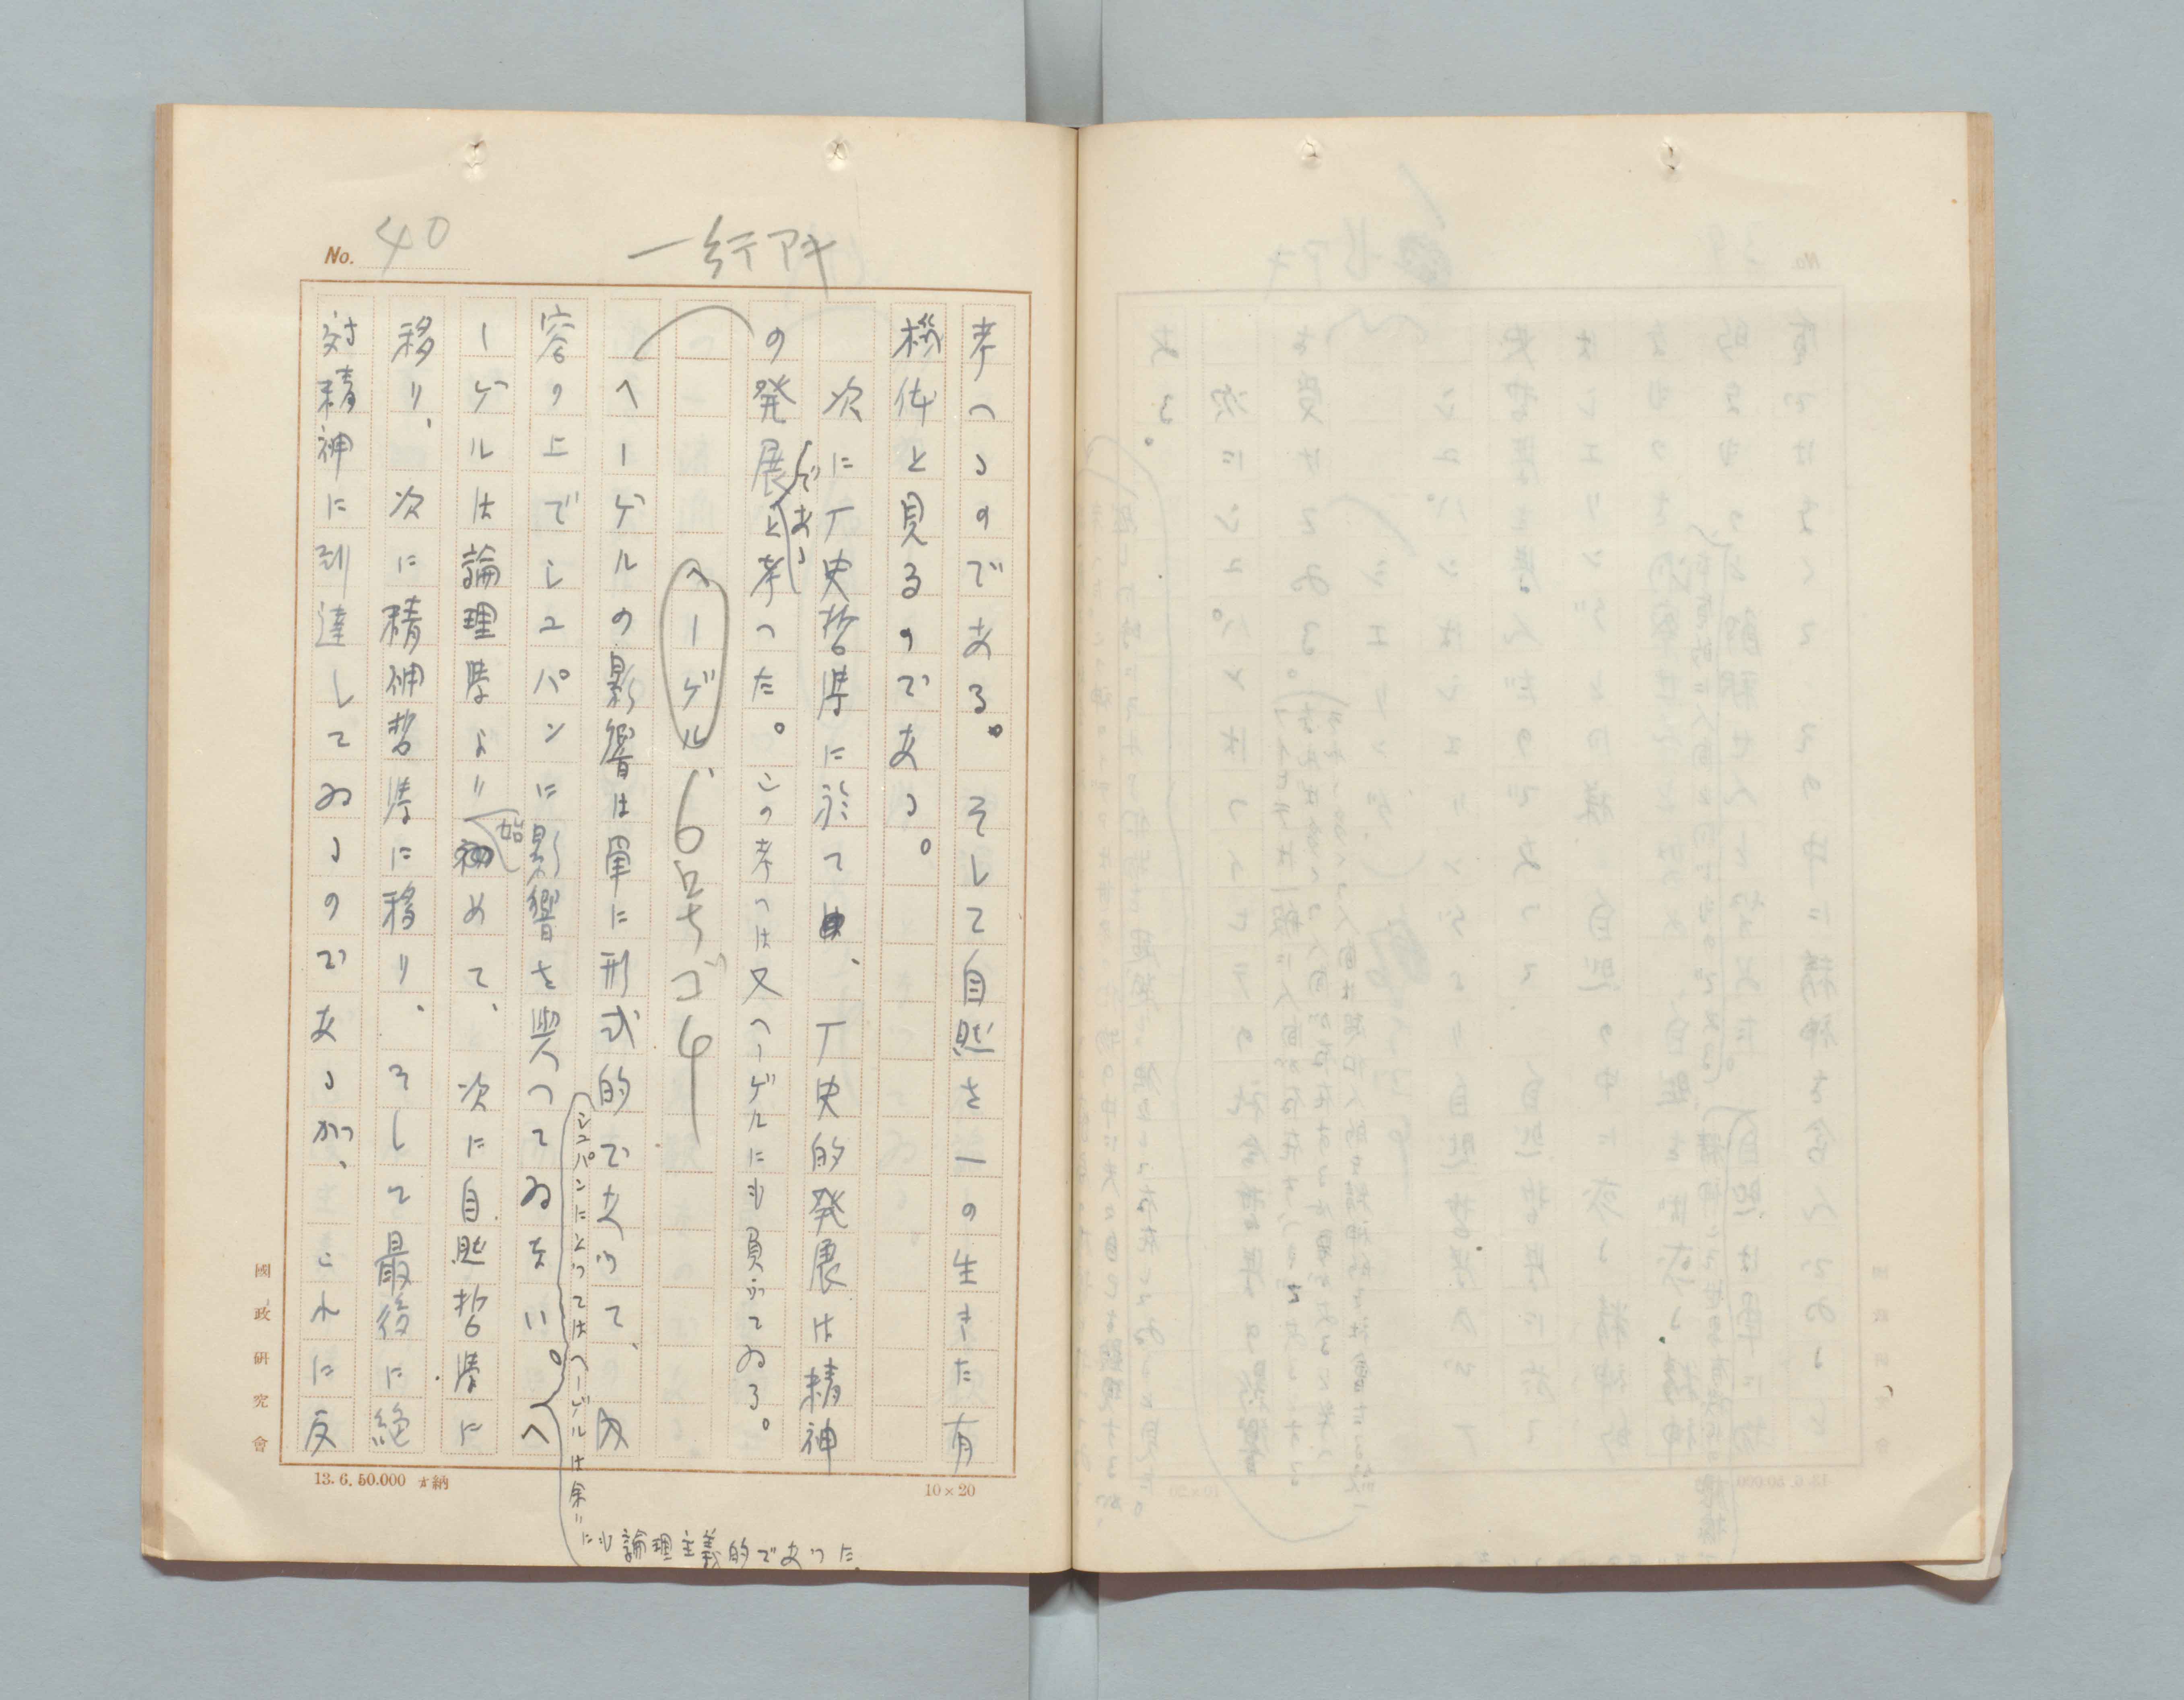 No. 40
一行アキ
考へるのである。そして自然を一の生きた有
機体と見るのである。
次に丁史哲学に於て、丁史的発展は精神
の発展であると考へた。この考へは又ヘーゲルにも負うてゐる。
ヘーゲル 6号ゴ4
ヘーゲルの影響は単に形式的であつて、内
容の上でシュパンに影響を与へてゐない。ヘ
シュパンにとつてはヘーゲルは余りにも論理主義的であつた。
ーゲルは論理学より始めて、次に自然哲学に
移り、次に精神哲学に移り、そして最後に絶
対精神に到達してゐるのであるが、これに反
國政研究會
13.6.50.000 納
10×20